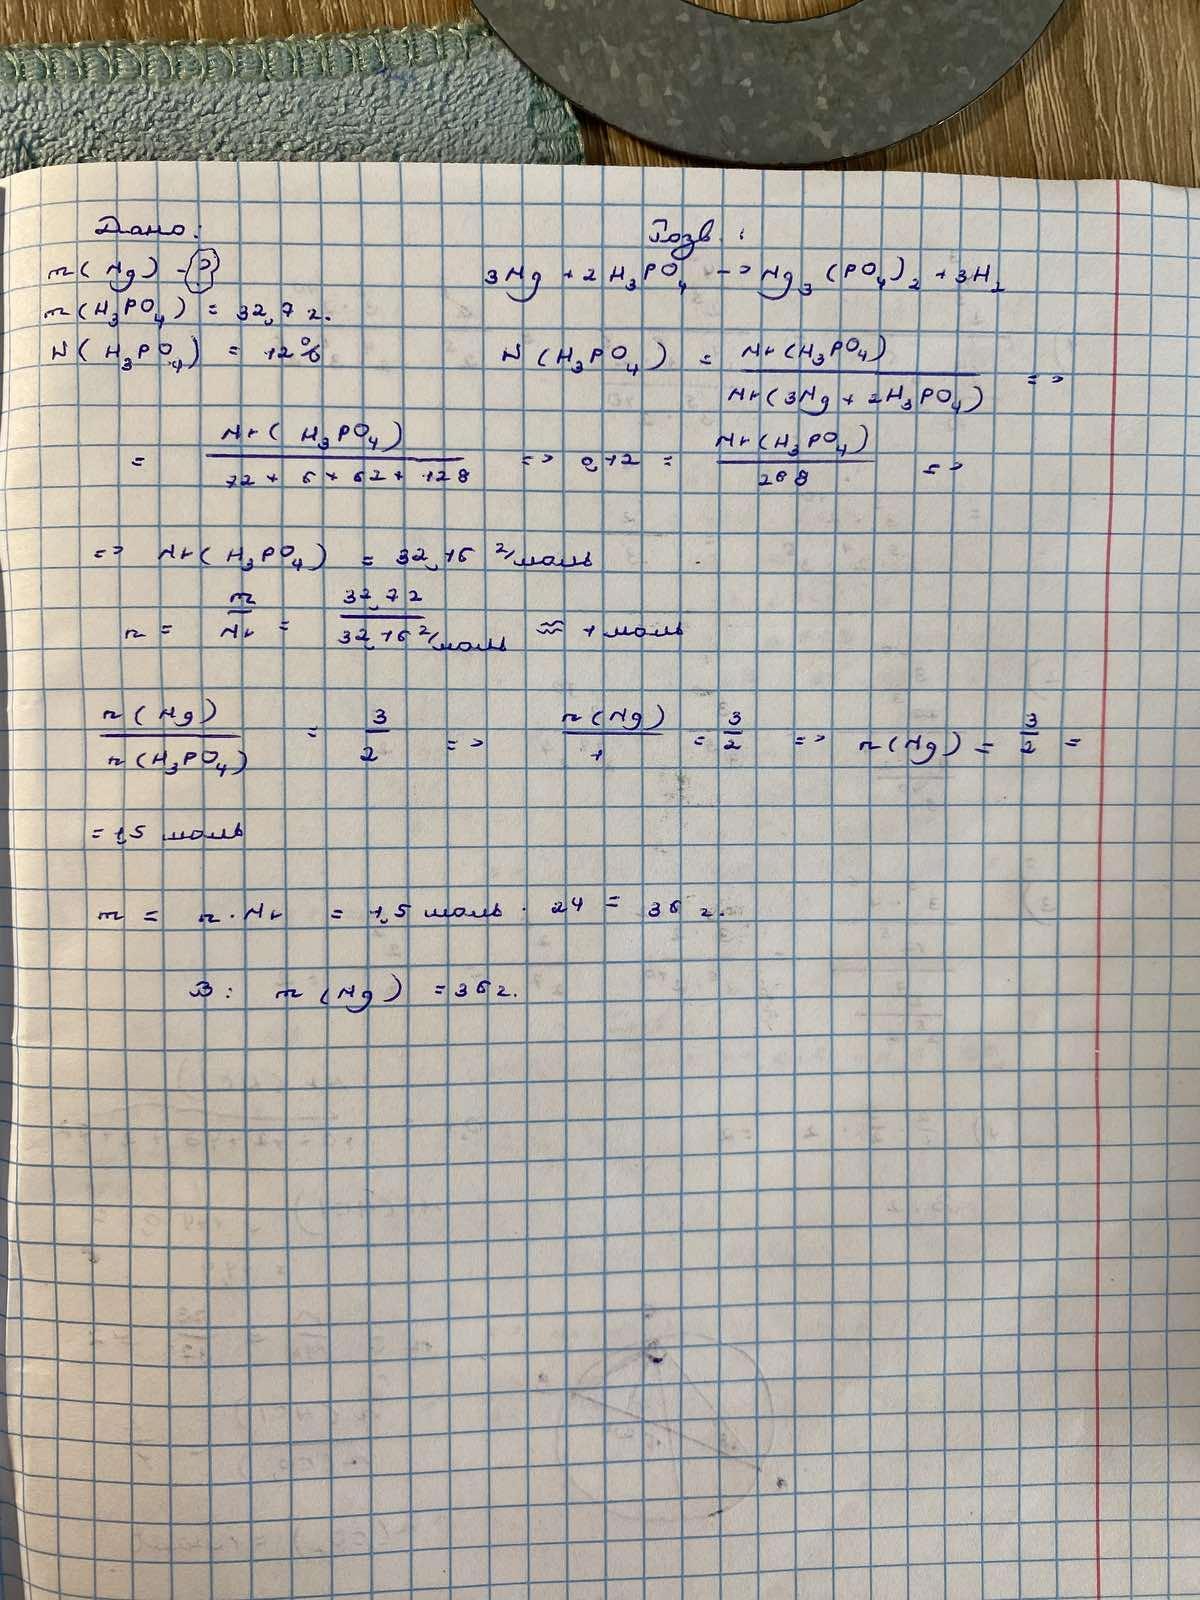 Дано: Розв.:
m(Mg) - ?
3Mg + 2H₃PO₄ -> Mg₃(PO₄)₂ + 3H₂
m(H₃PO₄) = 32,7 г.
W(H₃PO₄) = 12%
W(H₃PO₄) = Mr(H₃PO₄) / Mr(3Mg + 2H₃PO₄) =>
= Mr(H₃PO₄) / 72 + 6 + 62 + 128 => 0,12 = Mr(H₃PO₄) / 268 =>
=> Mr(H₃PO₄) = 32,16 г/моль
n = m / Mr = 32,7 г / 32,16 г/моль ≈ 1 моль
n(Mg) / n(H₃PO₄) = 3/2 => n(Mg) / 1 = 3/2 => n(Mg) = 3/2 =
= 1,5 моль
m = n · Mr = 1,5 моль · 24 = 36 г.
В: m(Mg) = 36 г.